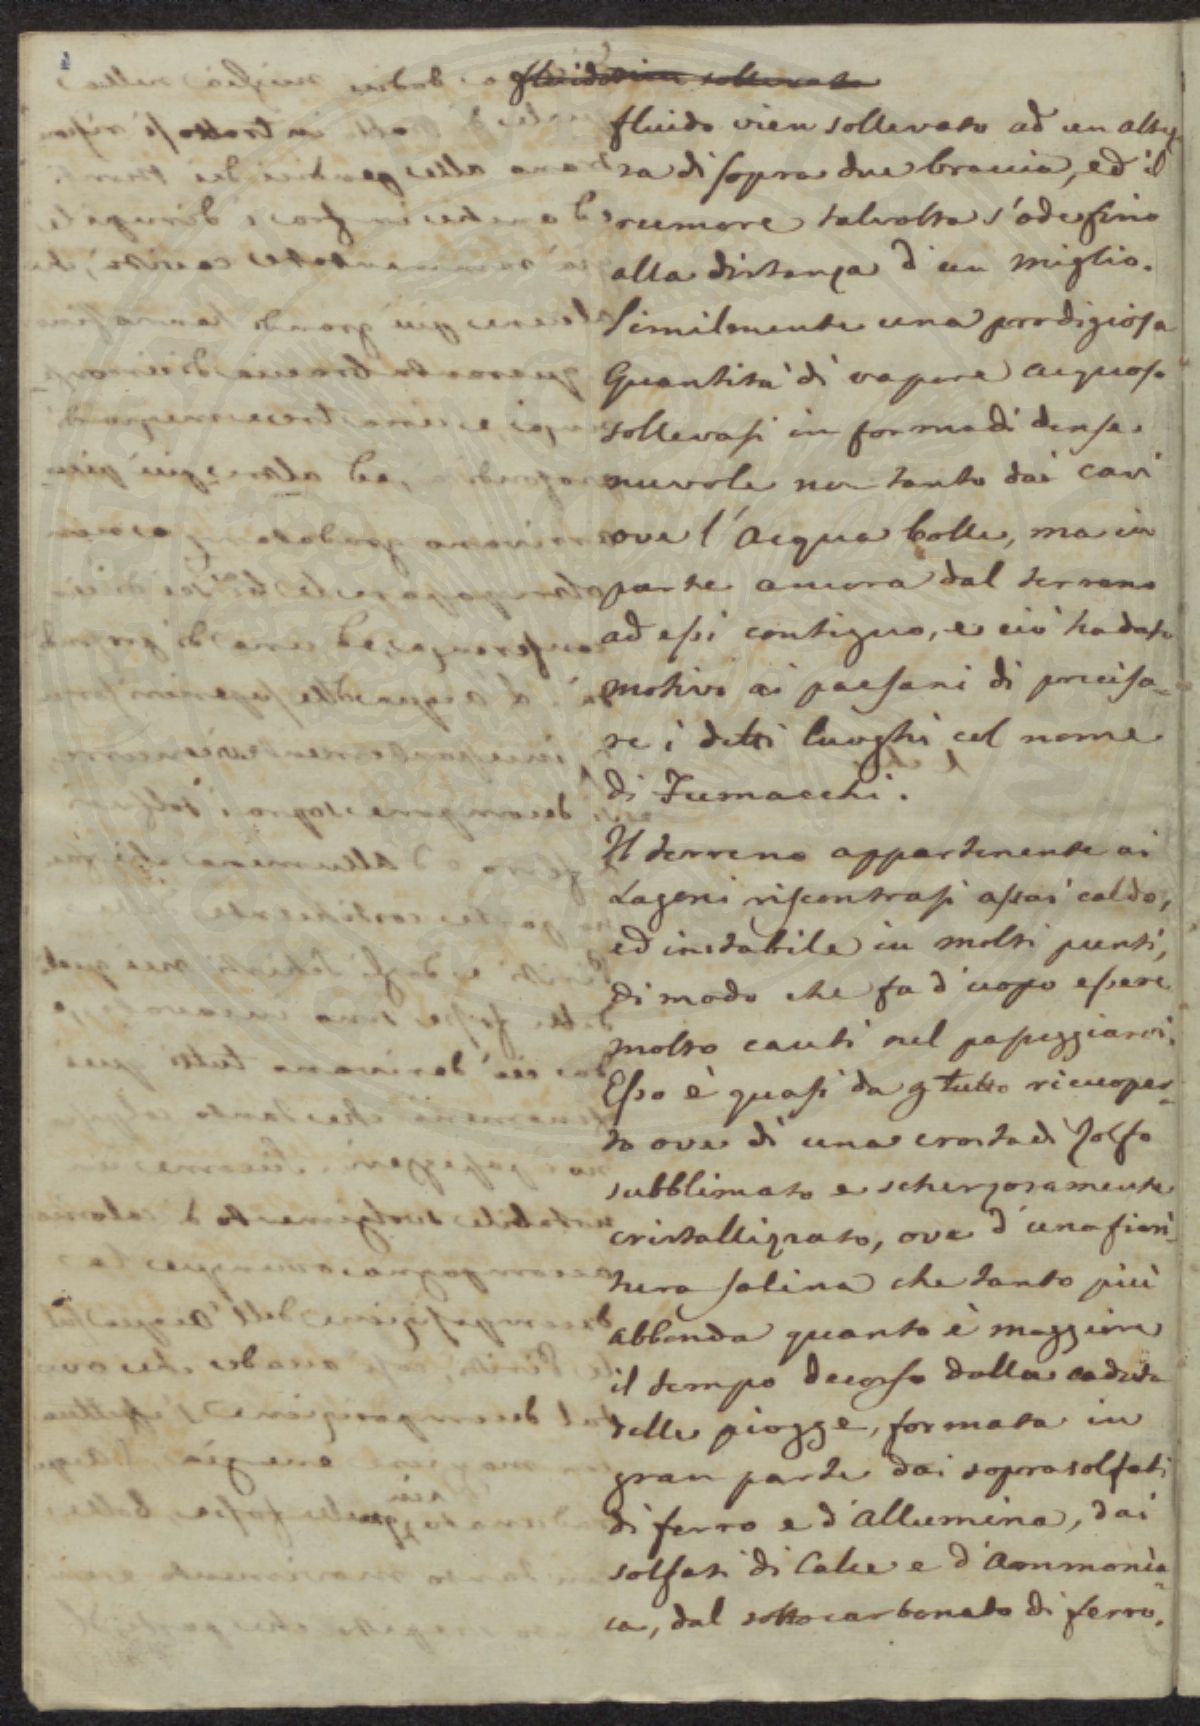 fluido vien sollevato
fluido vien sollevato ad un altez-
za di sopra due braccia, ed il
rumore talvolta s'ode fino
alla distanza d'un miglio.
Similmente una prodigiosa
Quantità di vapore acquoso
sollevasi in forma di dense
nuvole non tanto dai cavi
ove l'Acqua bolle, ma in
parte ancora dal terreno
ad essi contiguo, e ciò ha dato
motivo ai paesani di precisa-
re i detti luoghi col nome
di Fumacchi.
Il terreno appartenente ai
Lagoni riscontrasi assai caldo,
ed instabile in molti punti,
di modo che fa d'uopo essere
molto cauti nel passeggiarvi.
Esso è quasi da p tutto ricuoper-
to ove di una crosta di Zolfo
subblimato e scherzosamente
cristallizzato, ove d'una fiori-
tura salina che tanto più
abbonda quanto è maggiore
il tempo decorso dalla caduta
delle piogge, formata in
gran parte dai soprasolfati
di ferro e d'Allumina, dai
solfati di Calce e d'Ammonia-
ca, dal sotto carbonato di ferro.